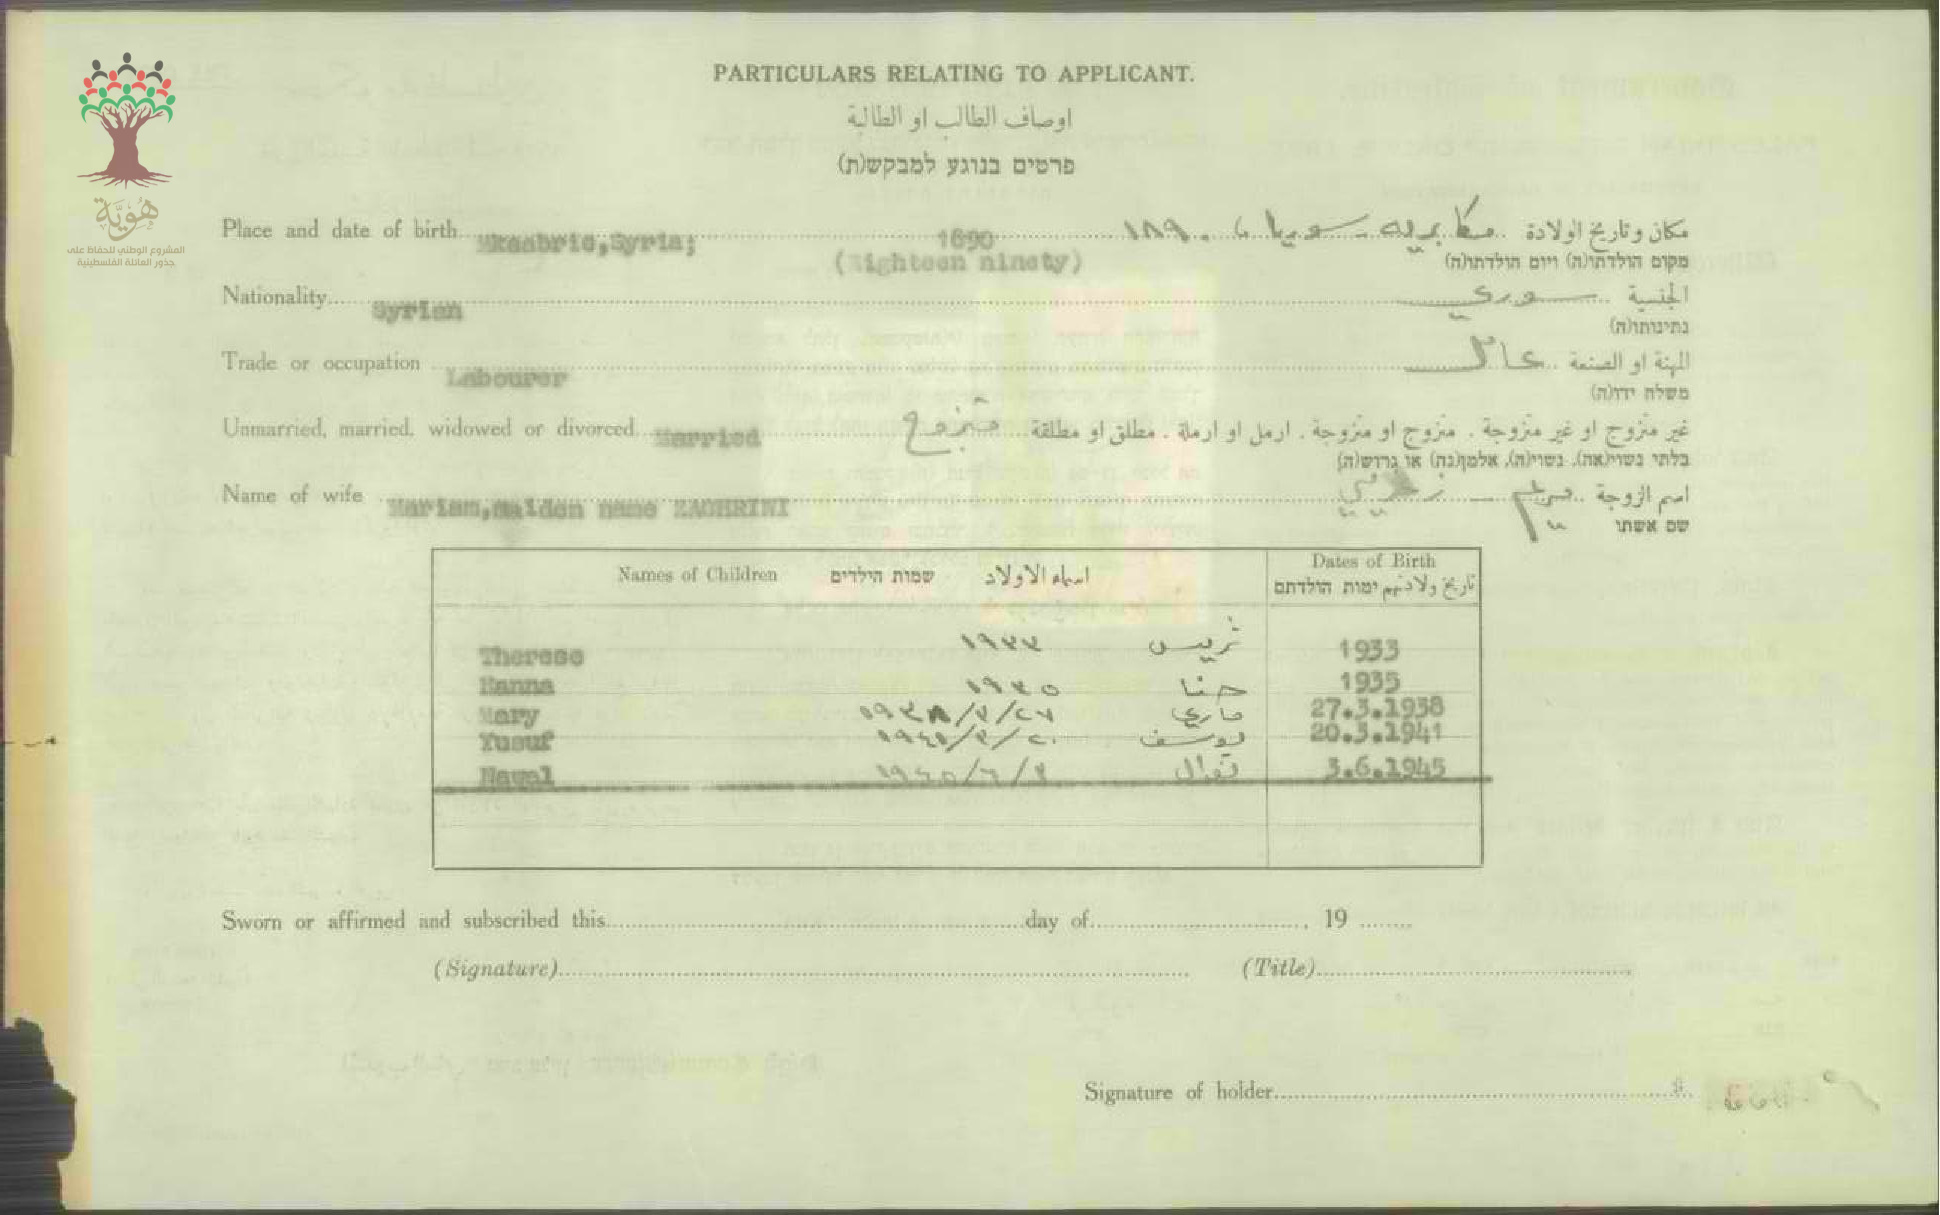 هُوِيَّة
المشروع الوطني للحفاظ على
جذور العائلة الفلسطينية
PARTICULARS RELATING TO APPLICANT.
اوصاف الطالب او الطالبة
פרטים בנוגע למבקש(ת)
Place and date of birth Mkaabrie,Syria; 1890 مكابريه سوريا ١٨٩٠ مكان وتاريخ الولادة
(Eighteen ninety) מקום הולדתו(ה) ויום הולדתו(ה)
Nationality Syrian سوري الجنسية
נתינותו(ה)
Trade or occupation Labourer عامل المهنة او الصنعة
משלח ידו(ה)
Unmarried, married, widowed or divorced Married متزوج غير متزوج او غير متزوجة . متزوج او متزوجة . ارمل او ارملة . مطلق او مطلقة
בלתי נשוי(אה), נשוי(ה), אלמן(נה) או גרוש(ה)
Name of wife Mariam,maiden name ZAGHRINI مريم اسم الزوجة
שם אשתו
Names of Children שמות הילדים اسماء الاولاد Dates of Birth
تاريخ ولادتهم ימות הולדתם
Therese ١٩٣٣ تريس 1933
Hanna ١٩٣٥ حنا 1935
Mary ١٩٣٨/٣/٢٧ ماري 27.3.1938
Yusuf ١٩٤١/٣/٢٠ يوسف 20.3.1941
Nawal ١٩٤٥/٦/٣ نوال 3.6.1945
Sworn or affirmed and subscribed this day of , 19
(Signature) (Title)
Signature of holder